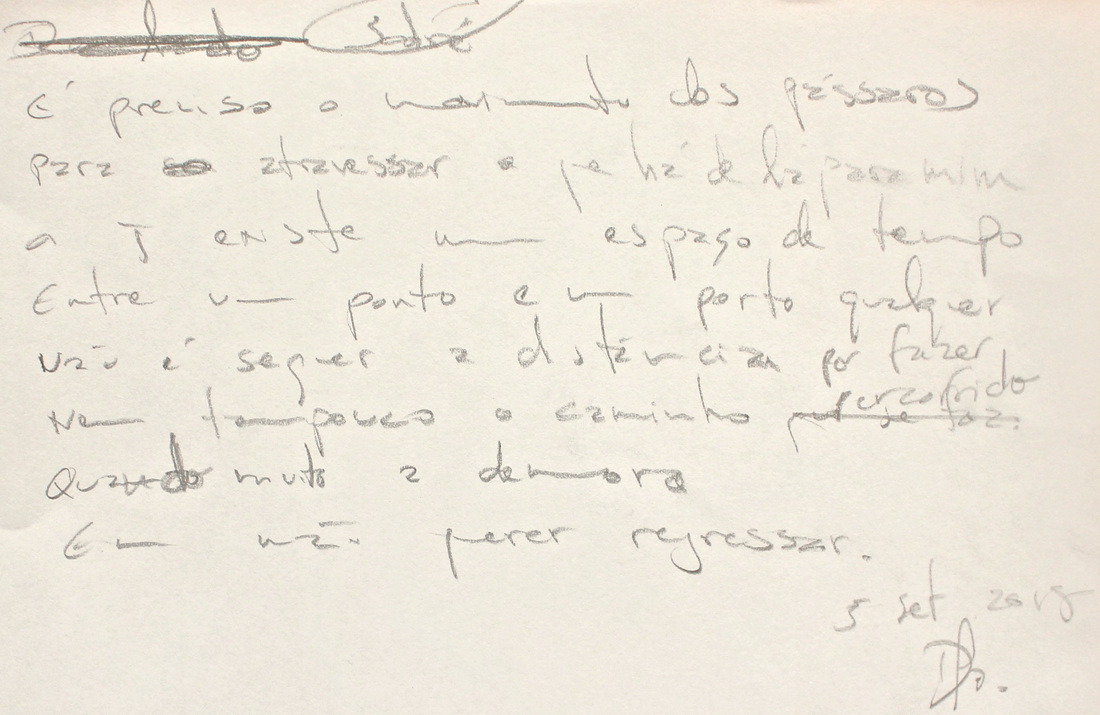 Sodré
É preciso o movimento dos pássaros
para atravessar o que há de lá para mim
a T existe um espaço de tempo
Entre um ponto e um porto qualquer
não é sequer a distância por fazer
Nem tampouco o caminho percorrido
Quando muito a demora
Em não querer regressar.
5 set 2015